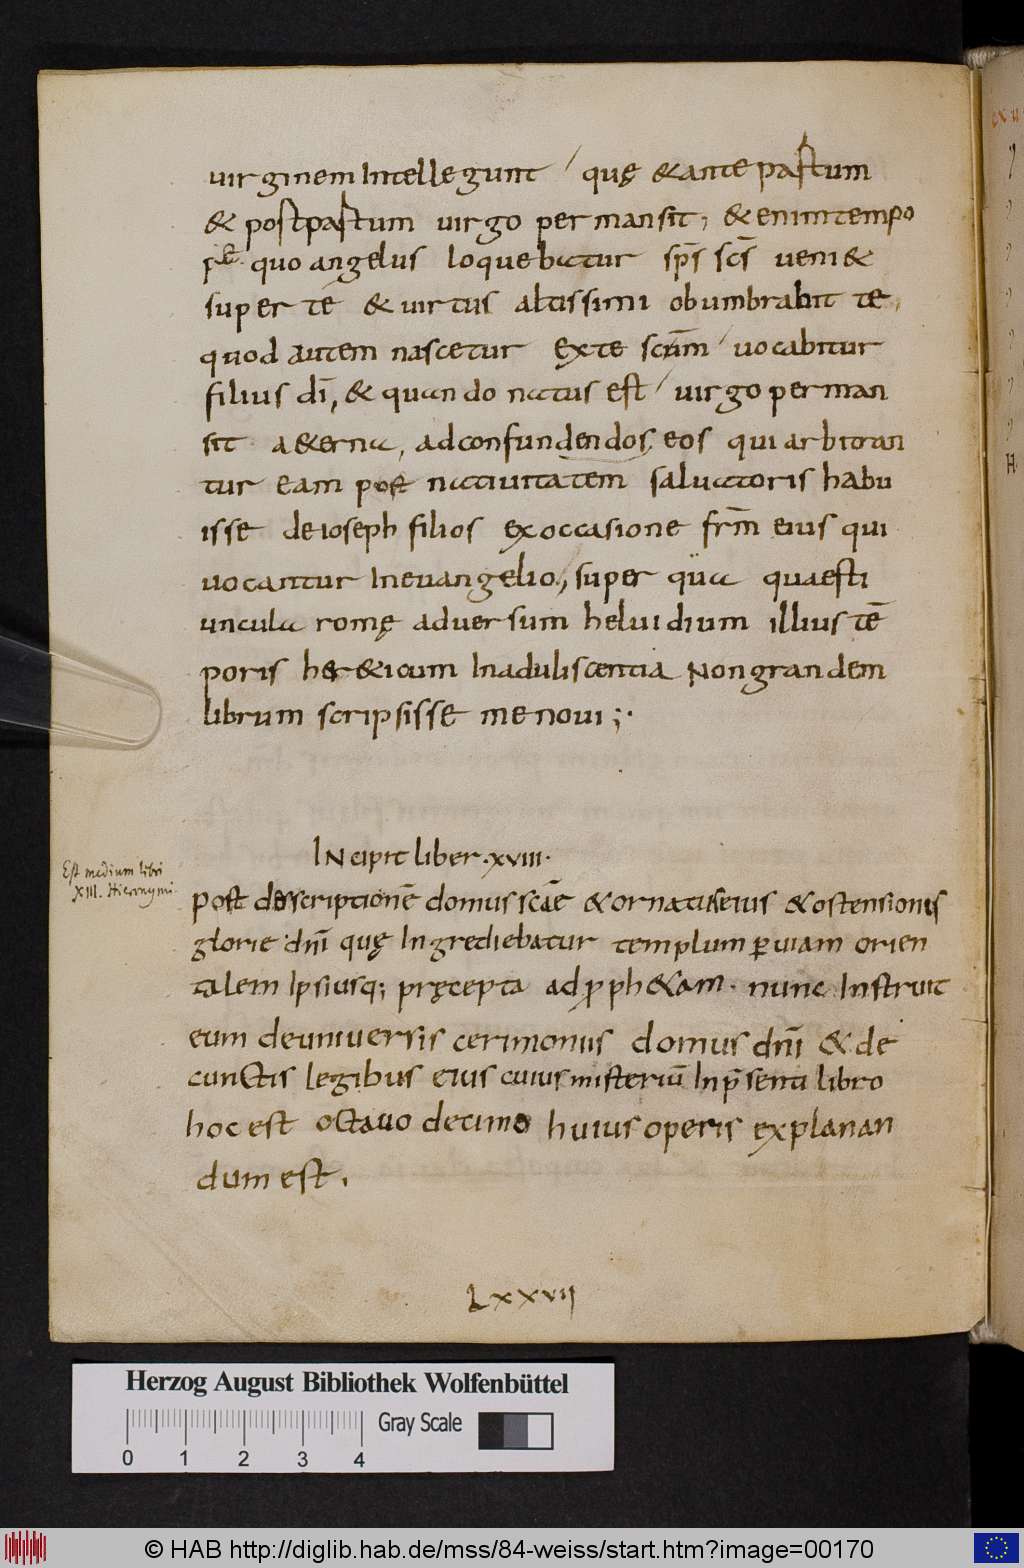 virginem Intellegunt quę & ante partum
& post partum virgo permansit; & enim tempo
re quo angelus loquebatur sps̄ scs̄ veni&
super te & virtus altissimi obumbrabit te,
quod autem nascetur exte scm̄ vocabitur
filius dī, & quando natus est virgo perman
sit a&erna, ad confundendos eos qui arbitran
tur eam post nativitatem salvatoris habu
isse de ioseph filios ex occasione frm̄ eius qui
vocantur In evangelio, super qua quaesti
uncula romę adversum helvidium illius tē
poris her&icum In aduliscentia Non grandem
librum scripsisse me novi;
INcipit liber .xviii.
Est medium libri
XIII. Hieronymi
Post descriptionē domus scāe & ornatus eius & ostensionis
glorie dnī quę Ingrediebatur templum ꝑ viam orien
talem Ipsiusq; pręcepta ad ꝓph&am. nunc Instruit
eum de universis cerimoniis domus dnī & de
cunctis legibus eius cuius misteriū In p̄senti libro
hoc est octavo decimo huius operis explanan
dum est.
Lxxvii
Herzog August Bibliothek Wolfenbüttel
Gray Scale
0 1 2 3 4
© HAB http://diglib.hab.de/mss/84-weiss/start.htm?image=00170